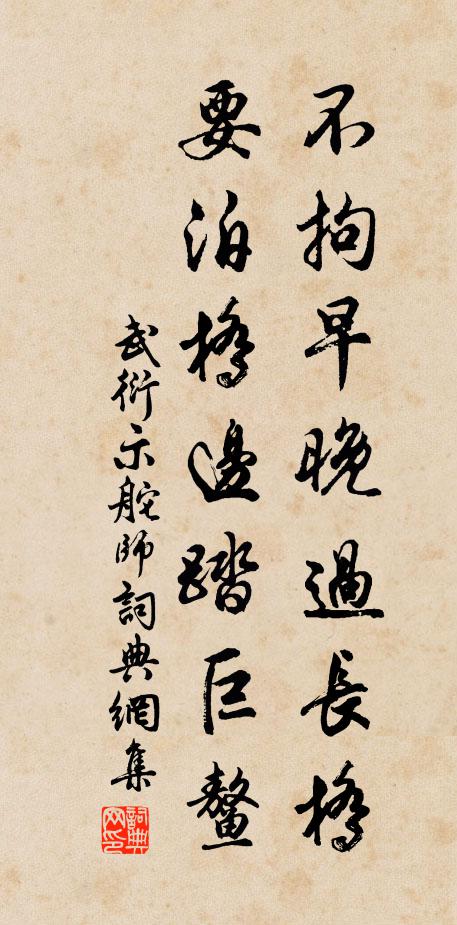 不拘早晚過長橋
要泊橋邊踏巨鰲
武衍示舵師詞典網集
詞典网印